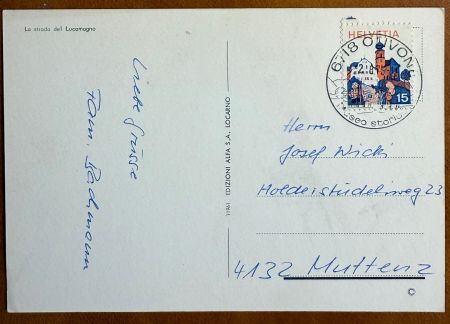 La strada del Lucomagno
Liebe Grüsse
Fam. Bachmann
11961 EDIZIONI ALFA S.A. LOCARNO
HELVETIA
15
6718 OLIVONE
Museo storico
Herrn
Josef Wicki
Holderstüdeliweg 23
4132 Muttenz
©